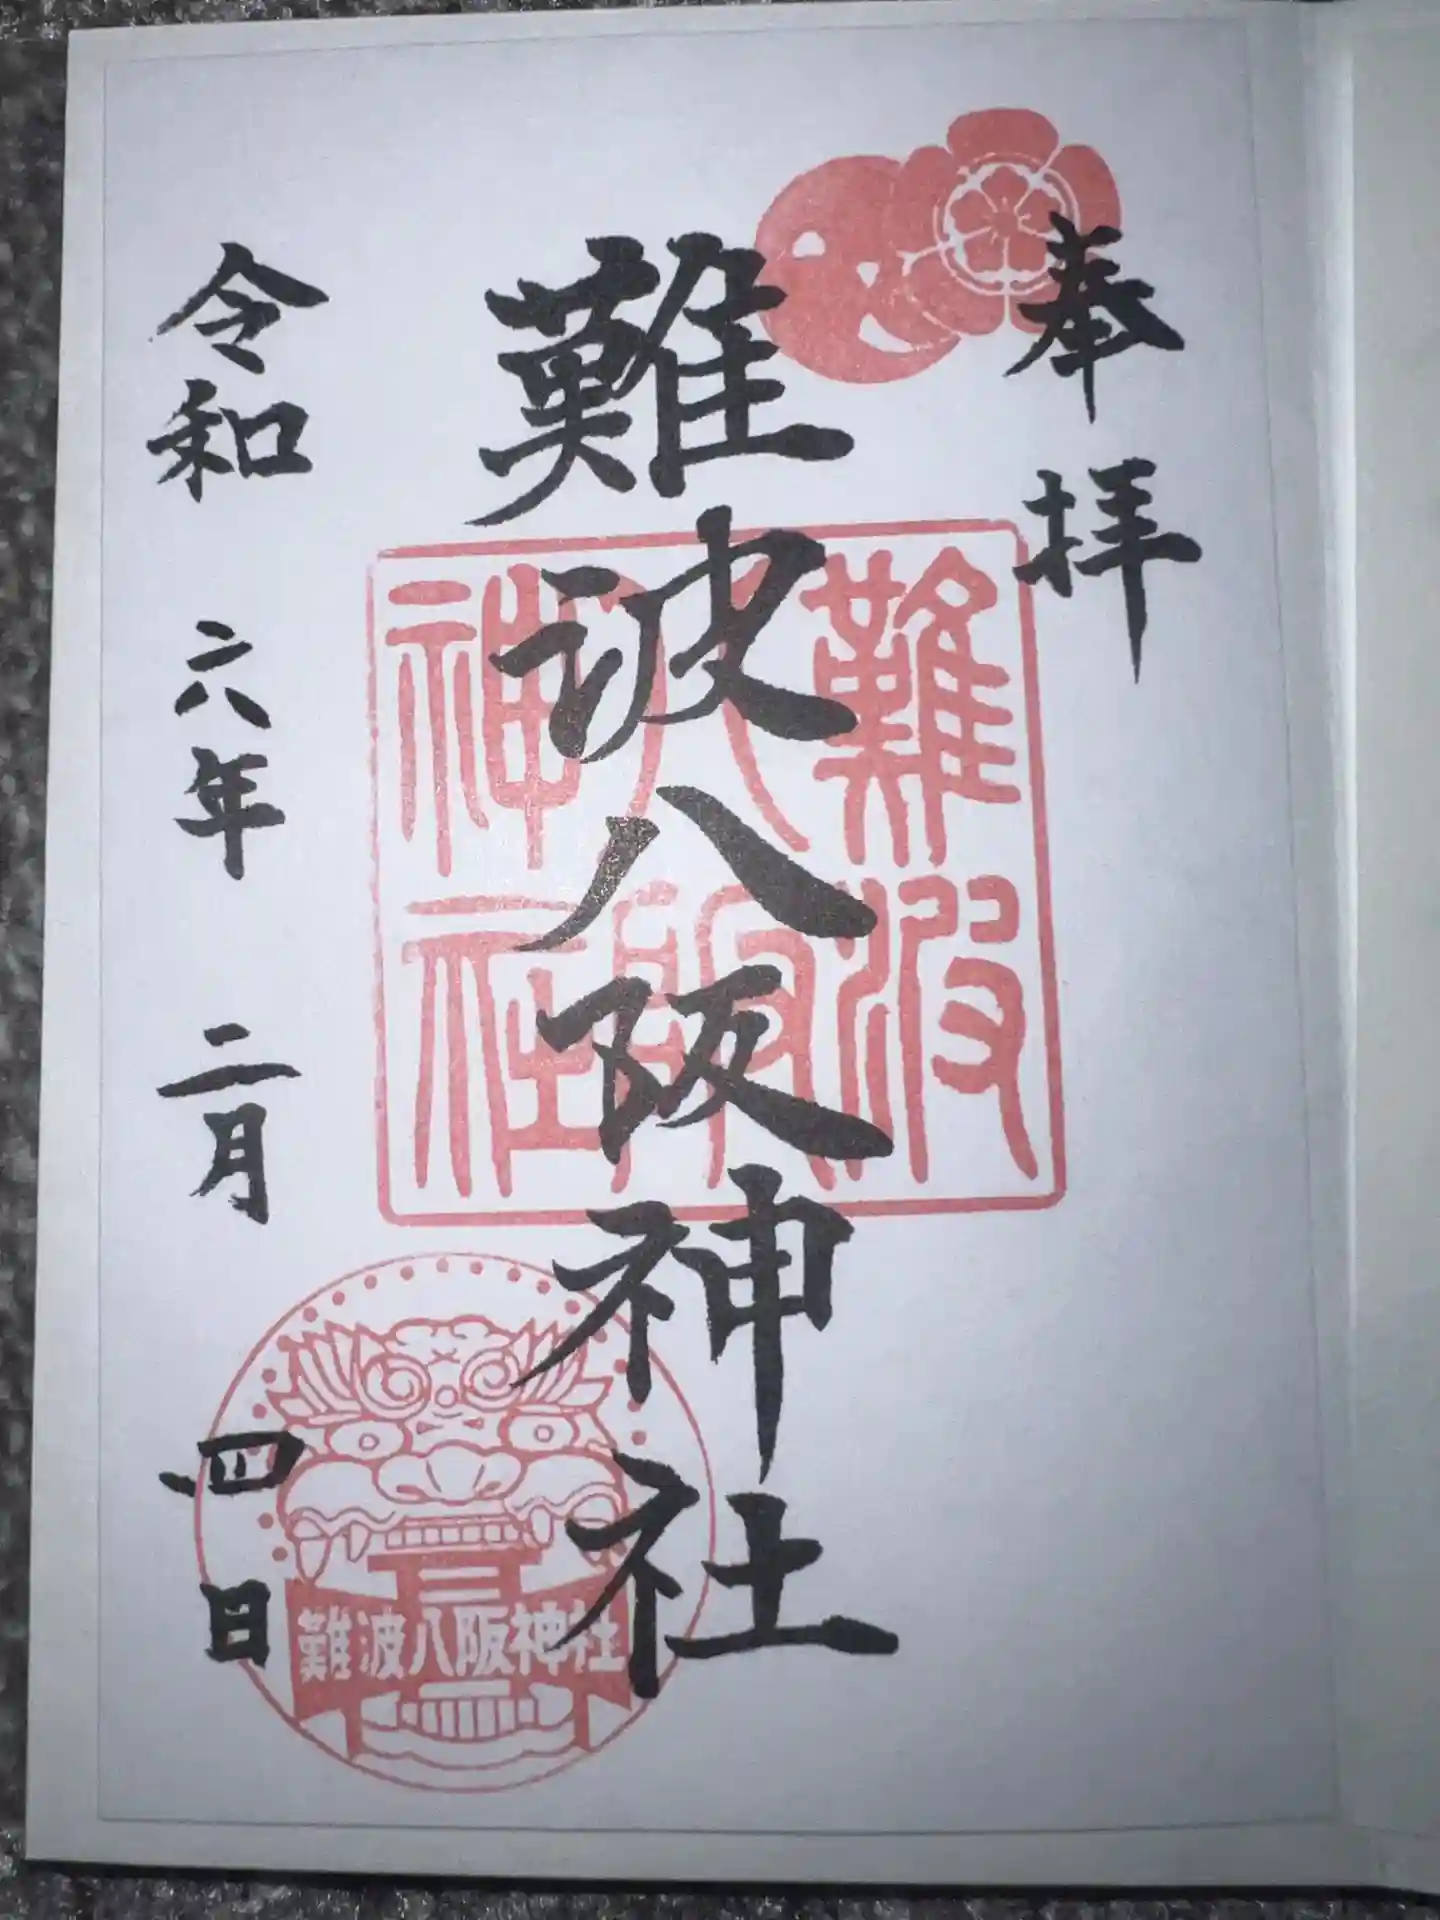 奉拝
難波八阪神社
難波
八阪
神社
令和六年二月四日
難波八阪神社